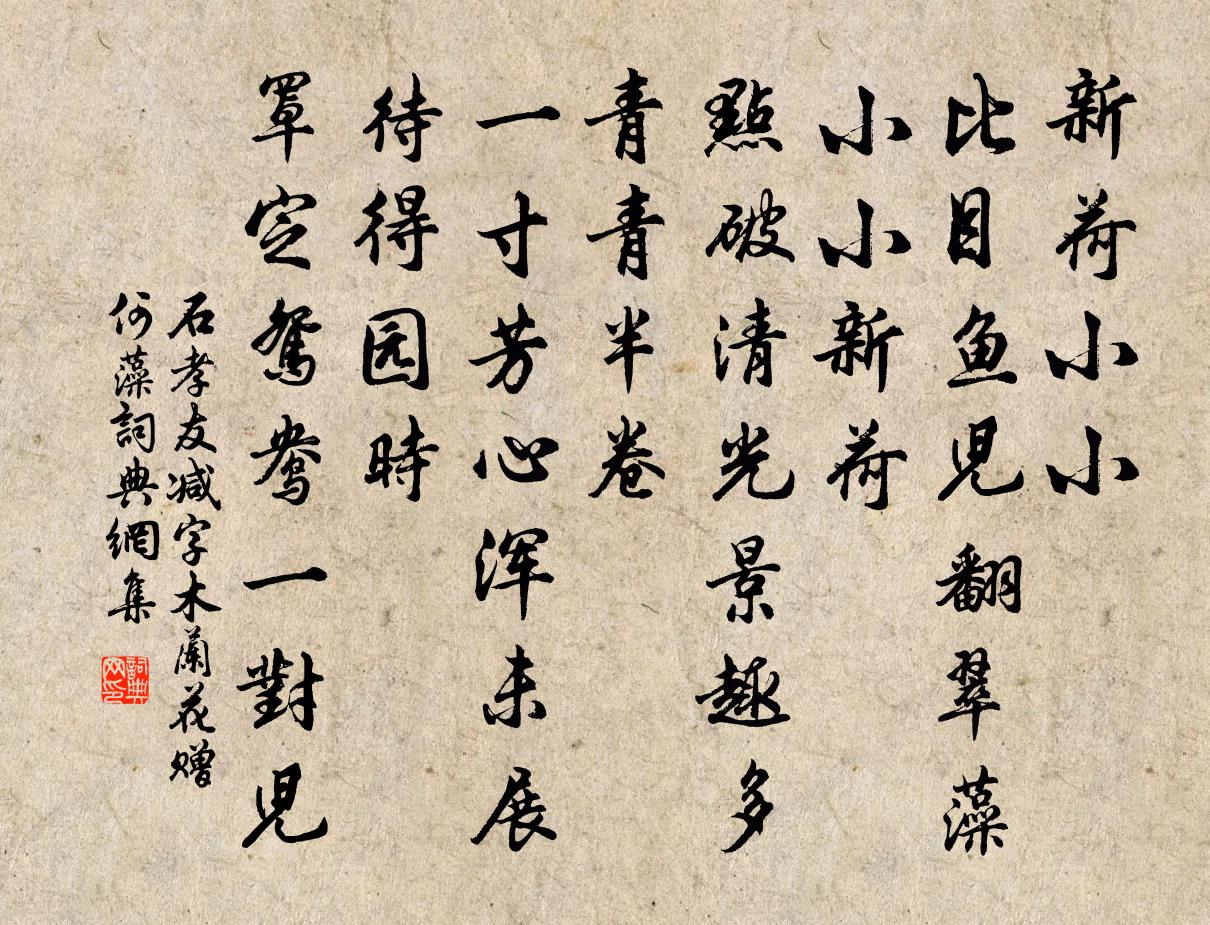 新荷小小
比目鱼児翻翠藻
小小新荷
點破清光景趣多
青青半卷
一寸芳心浑未展
待得园時
罩定鴛鴦一對児
石孝友减字木蘭花赠
何藻詞典網集
詞典网印